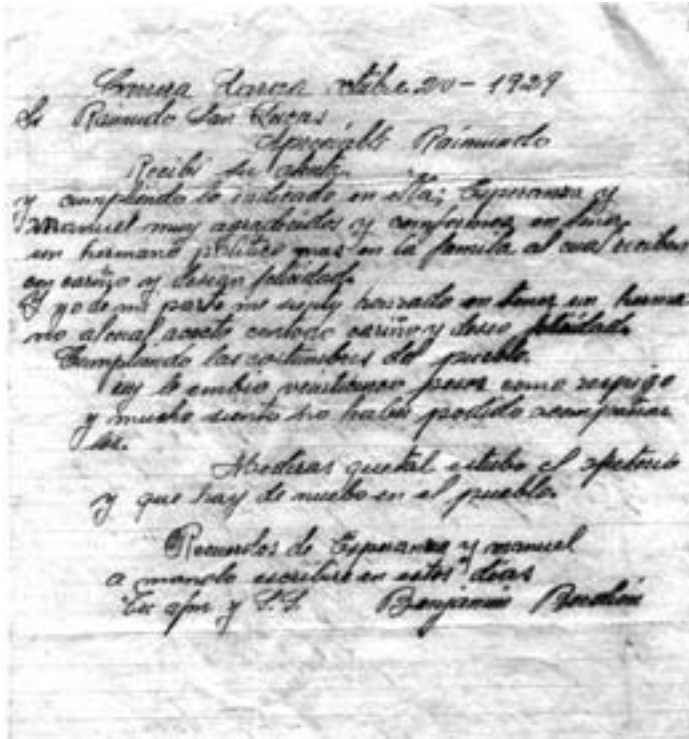 octubre 20 - 1929
Sr Raimundo San Lucas
Apreciable Raimundo
Recibi su atenta
y cumpliendo lo indicado en ella; Esperanza y
manuel muy agradecidos y conformes en tener
un hermano politico mas en la familia al cual reciben
con cariño y desean felicidad.
Y yo de mi parte me honrado en tener un herma
no al cual acepto con cariño y deseo felicidad.
Cumpliendo las costumbres del pueblo.
le embio veinticinco pesos como
y mucho siento no haber podido acompañar
les.
que tal estubo el
y que hay de nuebo en el pueblo.
Recuerdos de Esperanza y manuel
a manolo escribire en estos dias
Su afmo y S.S. Benjamin